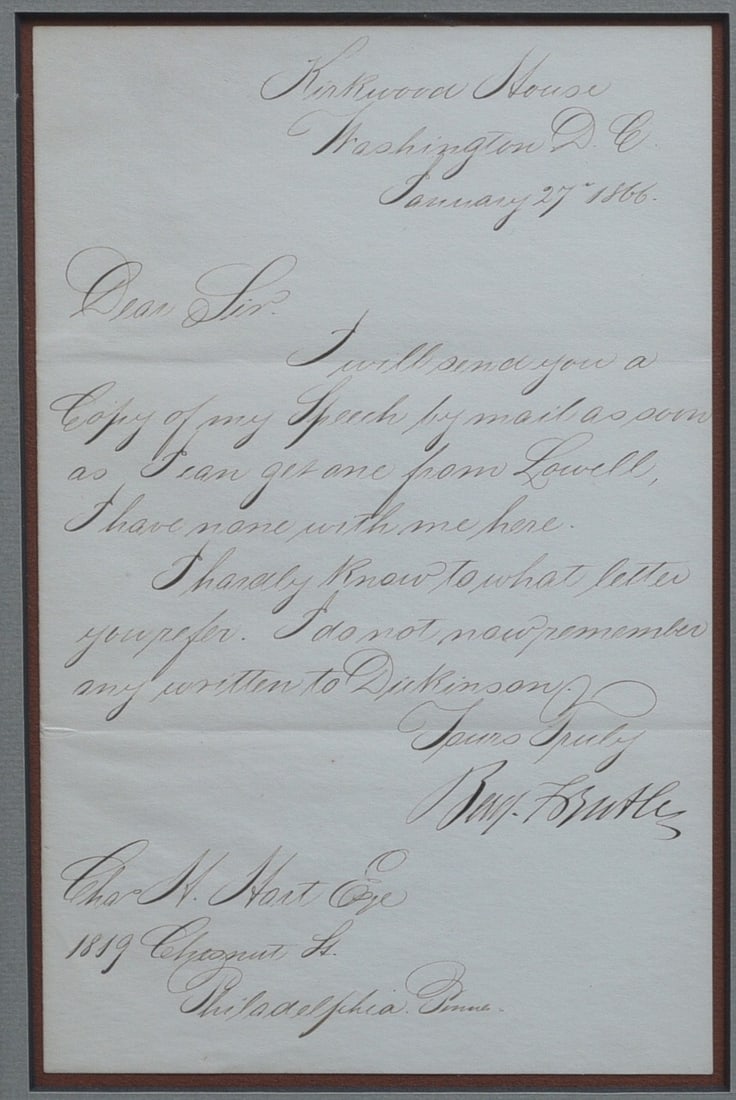 Kirkwood House
Washington D. C.
January 27" 1866.
Dear Sir.
I will send you a
Copy of my Speech by mail as soon
as I can get one from Lowell,
I have none with me here.
I hardly know to what letter
you refer. I do not now remember
any written to Dickinson.
Yours Truly
Benj. F Butler
Chas H. Hart Esqe
1819 Chesnut St.
Philadelphia. Penna.